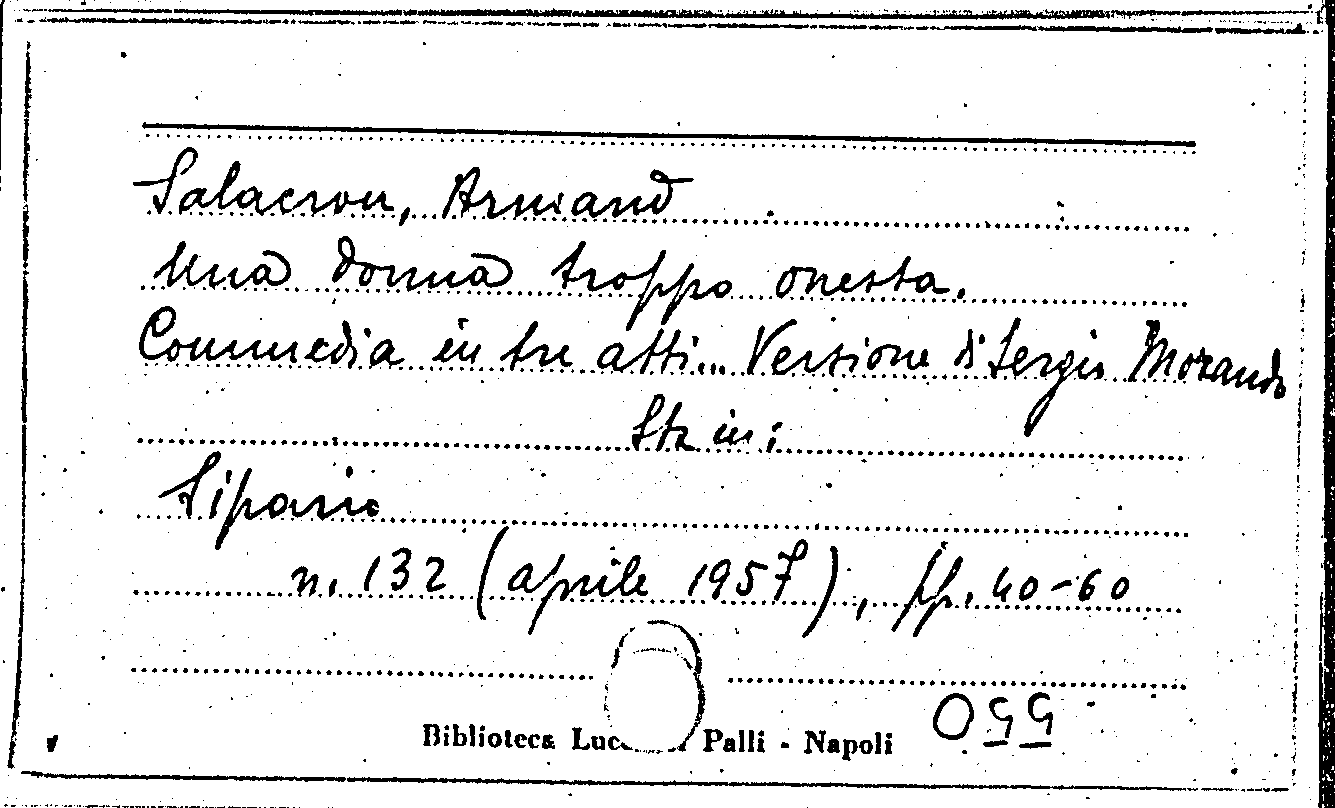 Salacrou, Armand
Una donna troppo onesta.
Commedia in tre atti... Versione di Sergio Morando
Sta in:
Sipario
n. 132 (aprile 1957), pp. 40-60
Biblioteca Palli - Napoli